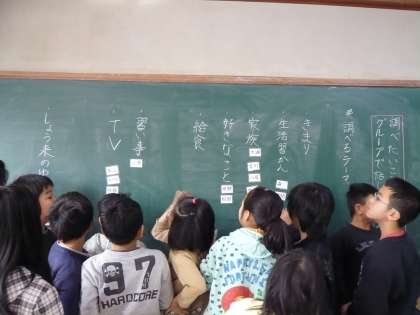 調べたいこ
グループで話
＊調べるテーマ
・きまり
・生活習かん
・家族
・好きなこと
・給食
・習い事
・TV
・しょう来のゆ
97
HARDCORE